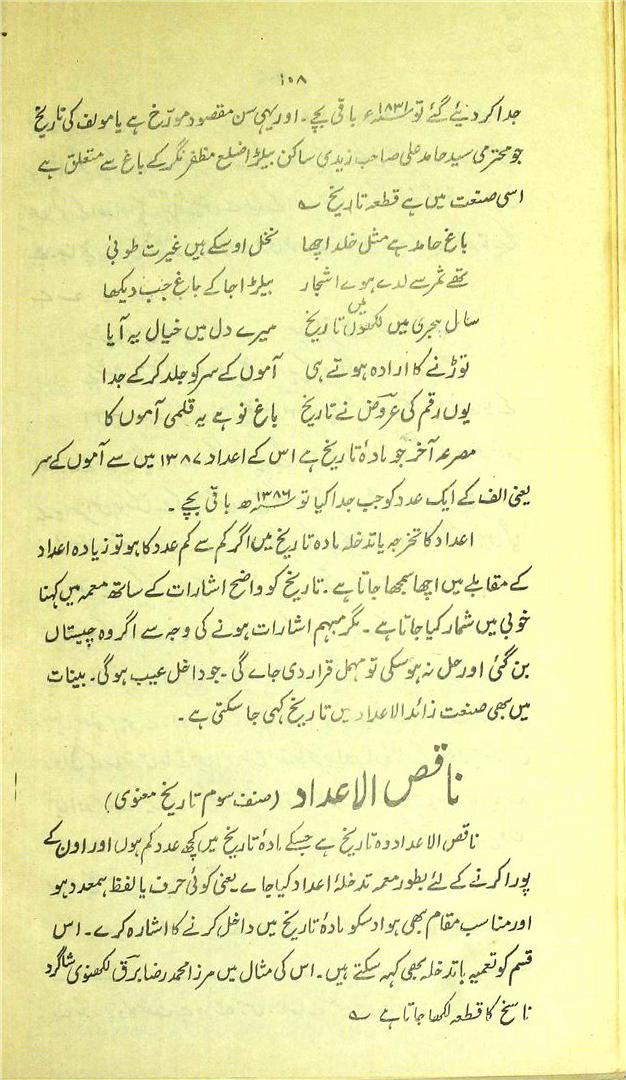 ۱۰۸
جدا کر دیئے گئے تو ۱۸۳۱ء باقی بچے۔ اور یہی سن مقصود مورّخ ہے یا مولف کی تاریخ
جو محترمی سید حامد علی صاحب زیدی ساکن بیلڑا ضلع مظفر نگر کے باغ سے متعلق ہے
اسی صنعت میں ہے قطعہ تاریخ ؎
باغ حامد ہے مثل خلد اچھا نخل اوسکے ہیں غیرت طوبیٰ
تھے ثمر سے لدے ہوے اشجار بیلڑا جا کے باغ جب دیکھا
سال ہجری میں لکھوں میں تاریخ میرے دل میں خیال یہ آیا
توڑنے کا ارادہ ہوتے ہی آموں کے سر کو جلد کر کے جدا
یوں رقم کی عروض نے تاریخ باغ نو ہے یہ قلمی آموں کا
مصرعہ آخر جو مادۂ تاریخ ہے اس کے اعداد ۱۳۸۷ میں سے آموں کے سر
یعنی الف کے ایک عدد کو جب جدا کیا تو ۱۳۸۶ھ باقی بچے۔
اعداد کا تخرجہ یا تدخلہ مادہ تاریخ میں اگر کم سے کم عدد کا ہو تو زیادہ اعداد
کے مقابلے میں اچھا سمجھا جاتا ہے۔ تاریخ کو واضح اشارات کے ساتھ معمہ میں کہنا
خوبی میں شمار کیا جاتا ہے۔ مگر مبہم اشارات ہونے کی وجہ سے اگر وہ چیستاں
بن گئی اور حل نہ ہو سکی تو مہمل قرار دی جاے گی۔ جو داخل عیب ہو گی۔ بینات
میں بھی صنعت زائد الاعداد میں تاریخ کہی جا سکتی ہے۔
ناقص الاعداد (صنف سوم تاریخ معنوی)
ناقص الاعداد وہ تاریخ ہے جسکے مادۂ تاریخ میں کچھ عدد کم ہوں اور اون کے
پورا کرنے کے لئے بطور معمہ تدخلۂ اعداد کیا جاے۔ یعنی کوئی حرف یا لفظ ہمعدد ہو
اور مناسب مقام بھی ہو اوسکو مادۂ تاریخ میں داخل کرنے کا اشارہ کرے۔ اس
قسم کو تعمیہ با تدخلہ بھی کہہ سکتے ہیں۔ اس کی مثال میں مرزا محمد رضا برق لکھنوی شاگرد
ناسخ کا قطعہ لکھا جاتا ہے ؎